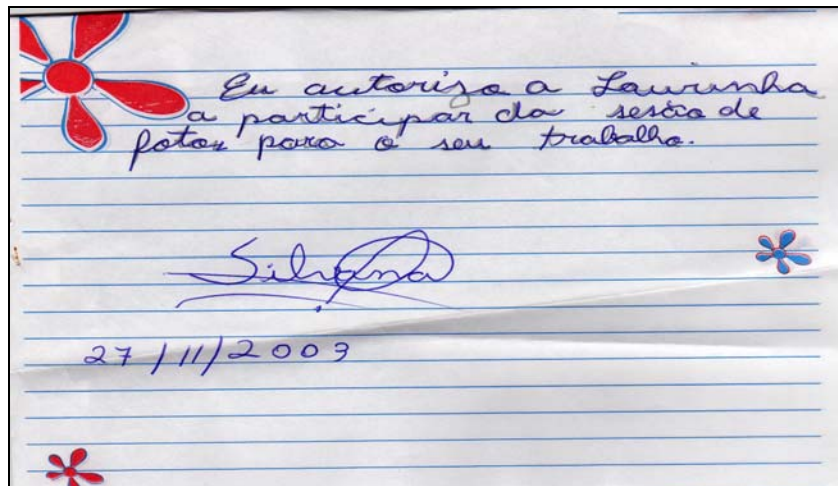 Eu autorizo a Laurinha
a participar da sesão de
fotos para o seu trabalho.
Silvana
27/11/2003